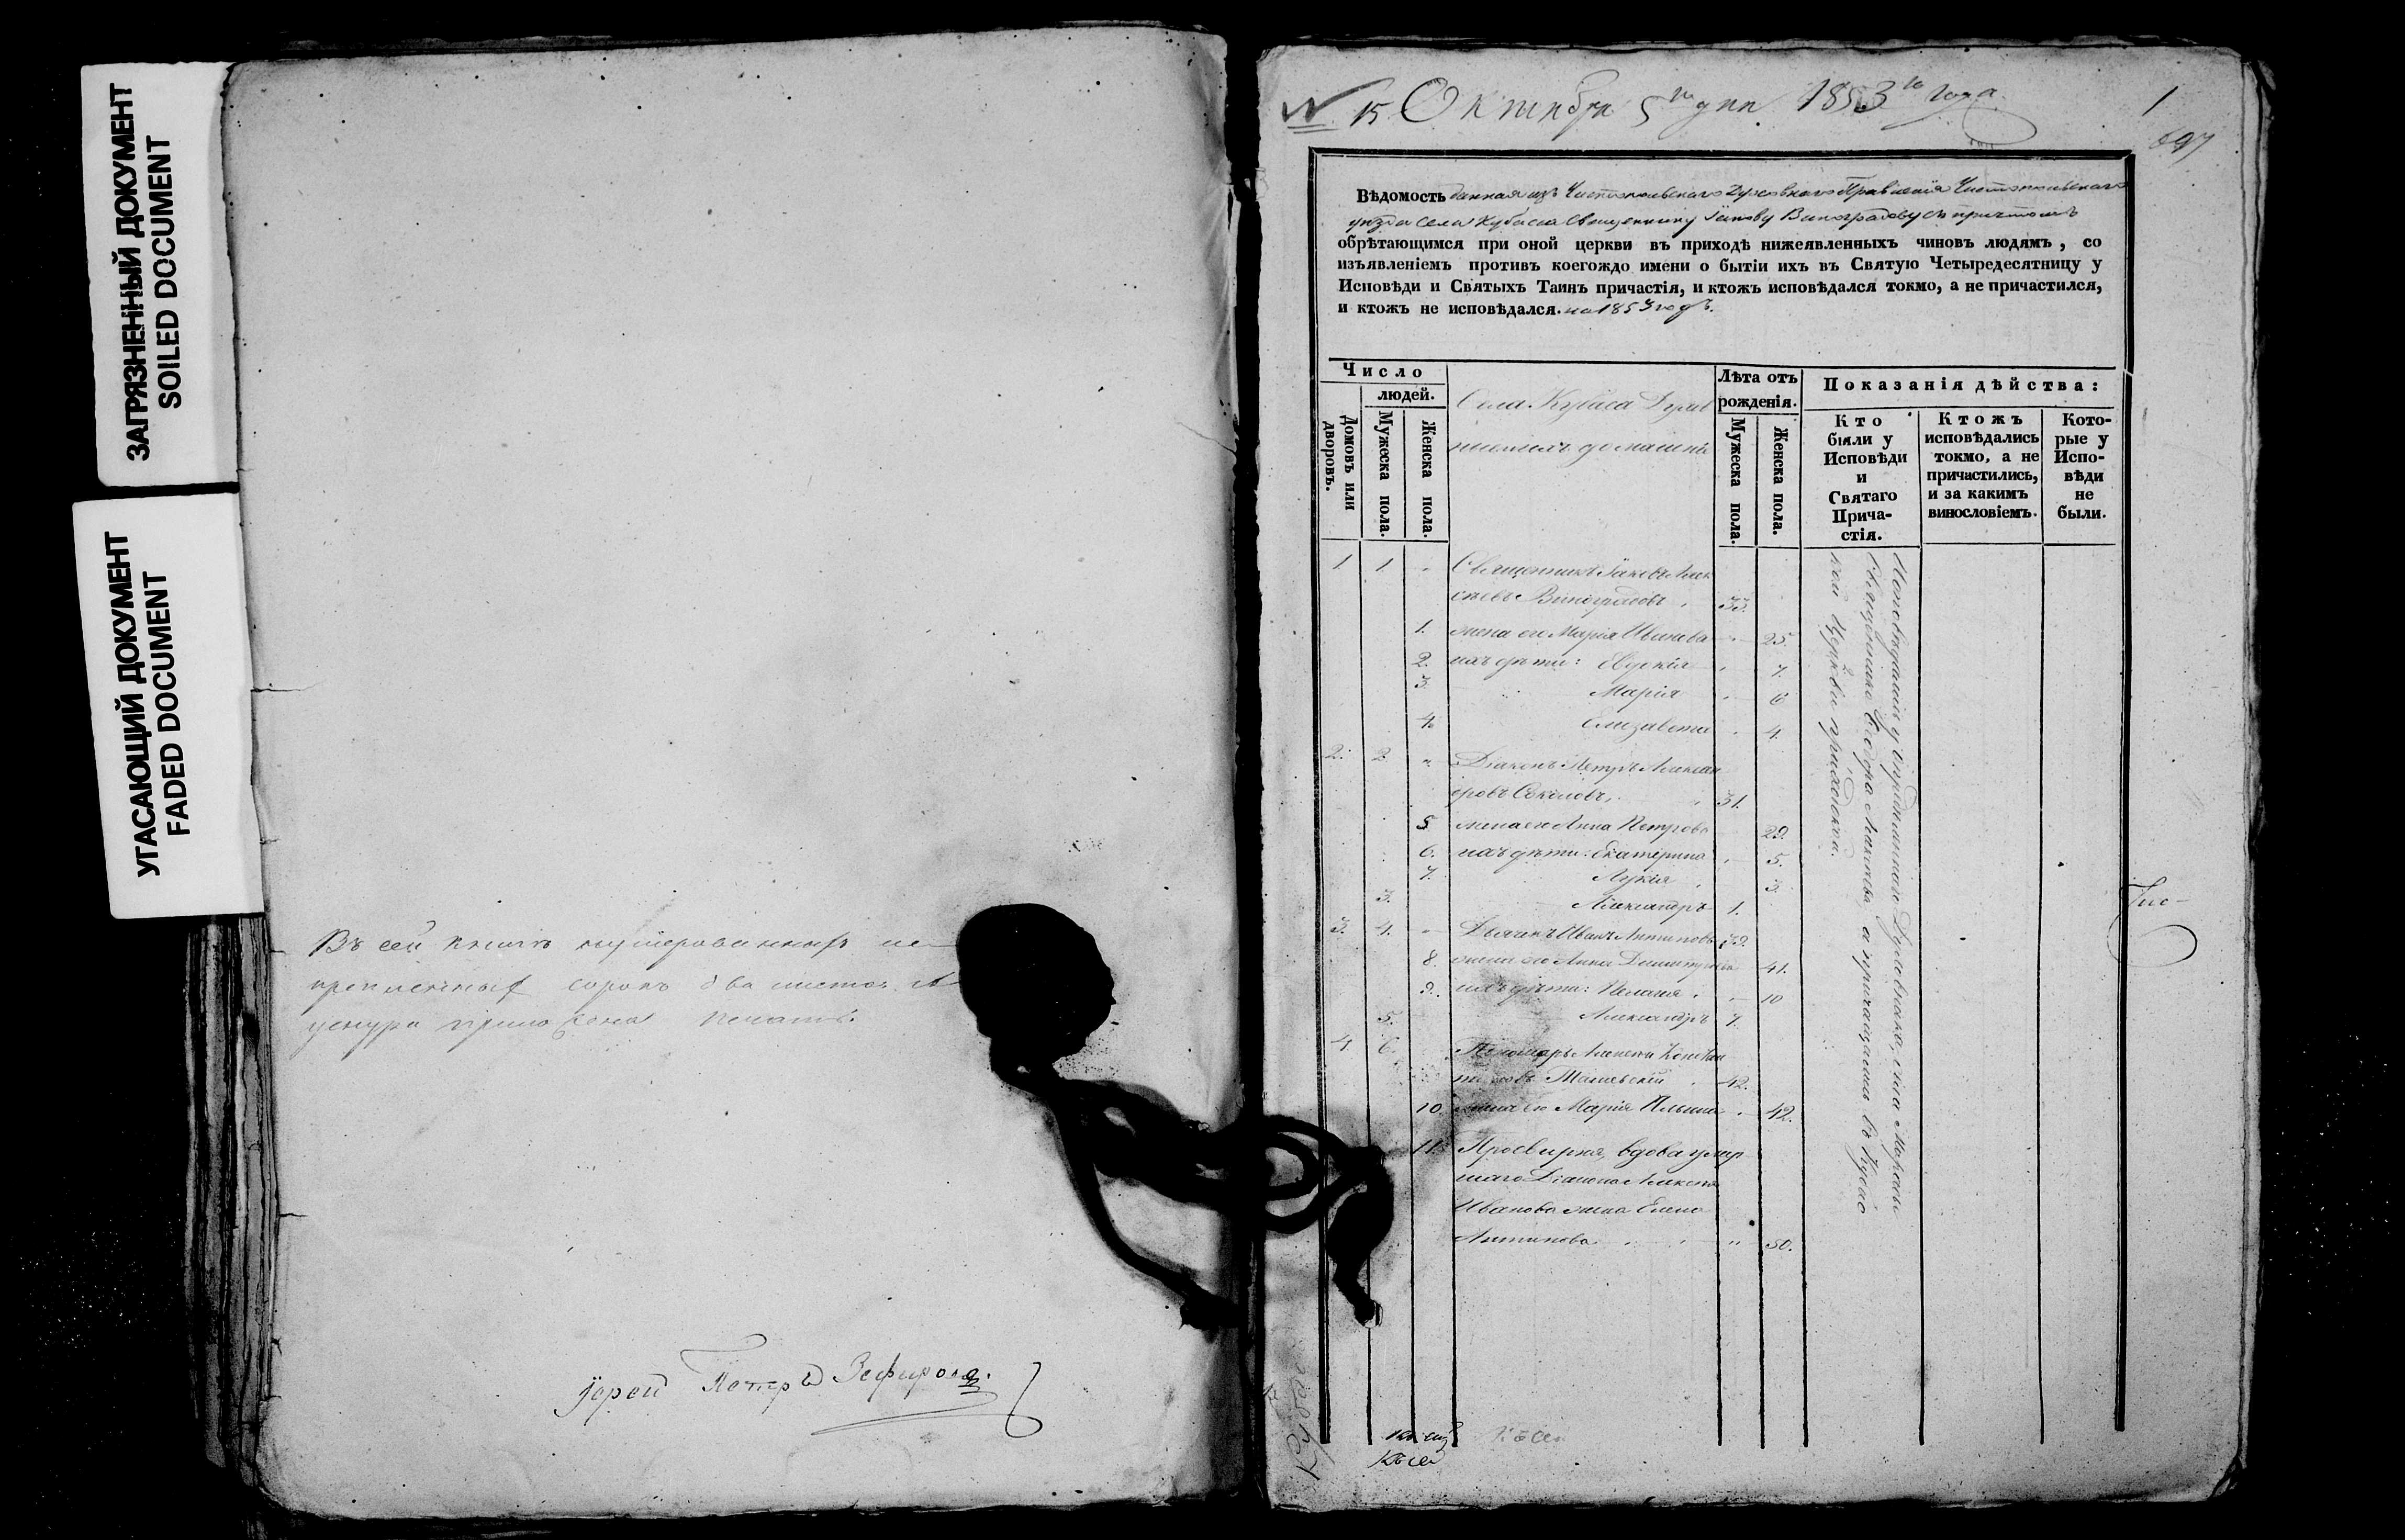 ЗАГРЯЗНЕННЫЙ ДОКУМЕНТ
SOILED DOCUMENT
УГАСАЮЩИЙ ДОКУМЕНТ
FADED DOCUMENT
Въ сей книгѣ нумерованныхъ
сорокъ два листа
печать.
Іерей Петръ Зефировъ.
№ 15 Октября 5го дня 1853го года.
1
697
Вѣдомость данная изъ Чистопольскаго Духовнаго Правленія Чистопольскаго
уѣзда села Кубаса Священнику Іакову Виноградову съ причтомъ
обрѣтающимся при оной церкви въ приходѣ нижеявленныхъ чиновъ людямъ, со
изъявленіемъ противъ коегождо имени о бытіи ихъ въ Святую Четыредесятницу у
Исповѣди и Святыхъ Таинъ причастія, и ктожъ исповѣдался токмо, а не причастился,
и ктожъ не исповѣдался. на 1853 годъ.
Число
людей.
Домовъ или дворовъ.
Мужеска пола.
Женска пола.
Села Кубаса Духов
Лѣта отъ рожденія.
Мужеска пола.
Женска пола.
Показанія дѣйства:
Кто были у Исповѣди и Святаго Прича-стія.
Ктожъ исповѣдались токмо, а не причастились, и за какимъ винословіемъ.
Кото-рые у Испо-вѣди не были.
1. 1. Священникъ Іаковъ Алек
сѣевъ Виноградовъ 33.
1. жена его Марія Иванова 25.
2. ихъ дѣти: Евдокія 7.
3. Марія 6
4. Елизавета 4.
2. 2 Діаконъ Петръ Алексан
дровъ Соколовъ, 31.
5 жена его Анна Петрова 29.
6. ихъ дѣти: Екатерина 5.
7. Лукія 3
3. Александръ 1.
3. 4. Дьячекъ Иванъ Антиповъ 39.
8. жена его Анна Димитріева 41.
9. ихъ дѣти: Пелагія 10
5. Александръ 7.
4. 6. Пономарь Алексѣй Констан
42.
10. жена его Марія Ильина 42.
11. Просвирня, вдова умер
шаго Діакона Алексѣя
Иванова жена Елена
Антипова 50.
Исповѣдались у
Священника Ѳеодора а причащались въ Кубас
ской Церкви приходской.